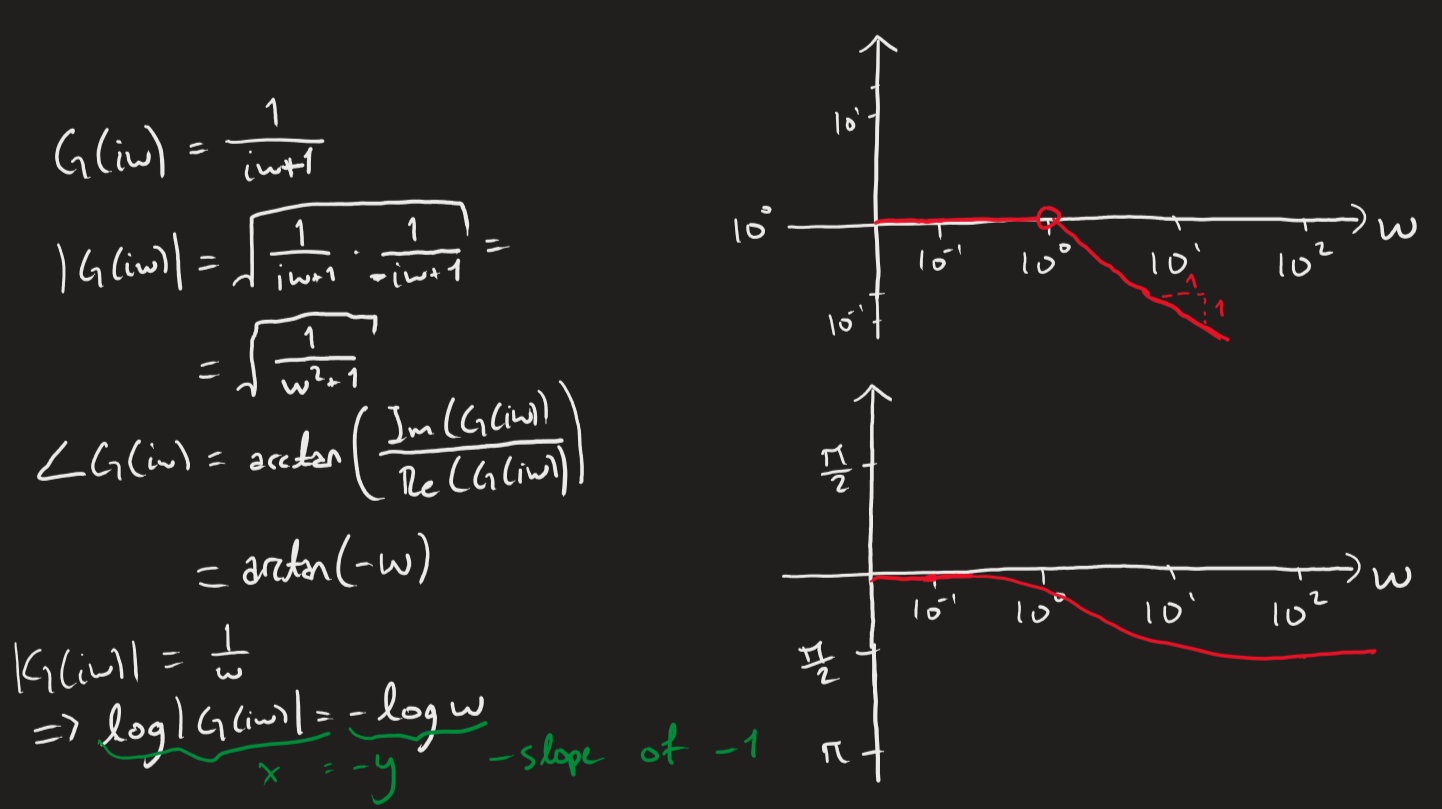 G(iw) = 1/(iw+1)
|G(iw)| = √(1/(iw+1) · 1/(-iw+1)) =
= √(1/(w²+1))
∠G(iw) = arctan(Im(G(iw))/Re(G(iw)))
= arctan(-w)
|G(iw)| = 1/w
=> log|G(iw)| = -log w
x = -y - slope of -1
10¹
10⁰
w
10⁻¹ 10⁰ 10¹ 10²
1
1
10⁻¹
π/2
w
10⁻¹ 10⁰ 10¹ 10²
π/2
π